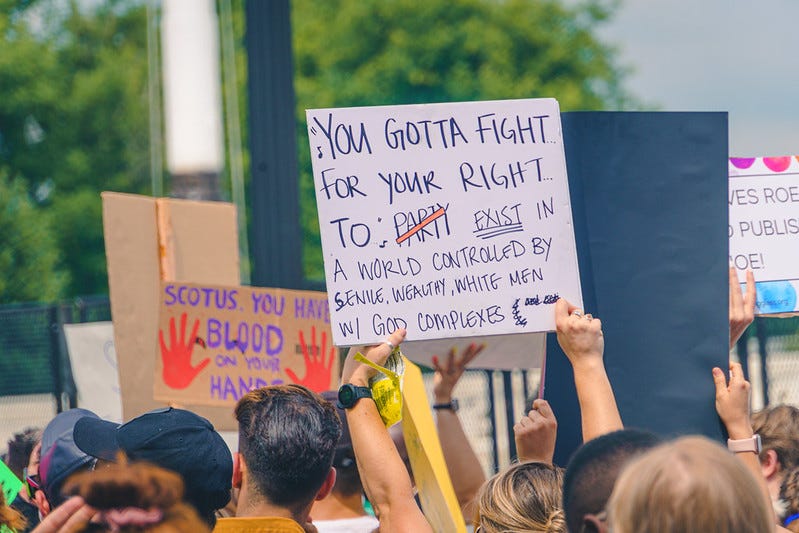 "YOU GOTTA FIGHT...
FOR YOUR RIGHT...
TO: PARTY EXIST IN
A WORLD CONTROLLED BY
SENILE, WEALTHY, WHITE MEN
W/ GOD COMPLEXES
SCOTUS. YOU HAVE
BLOOD
ON YOUR
HANDS
VES ROE
PUBLIS
OE!